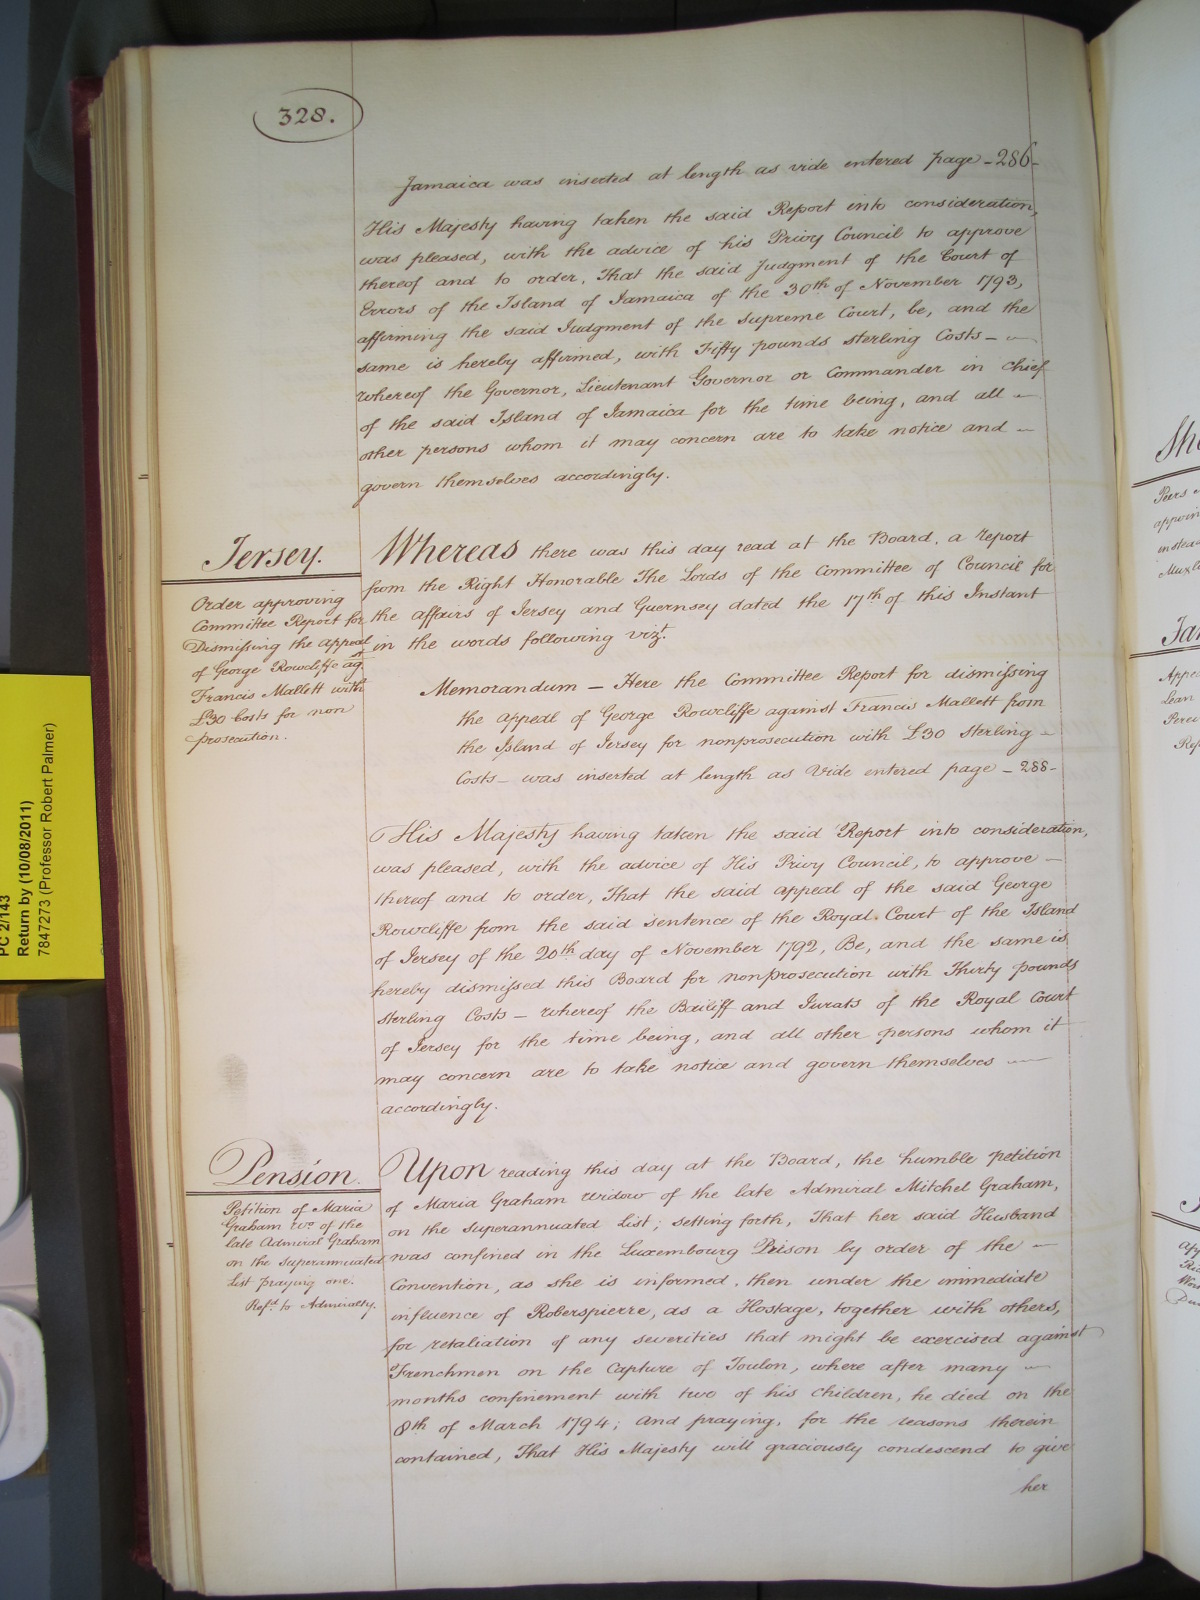 328.
Jamaica was inserted at length as vide entered page -286-
His Majesty having taken the said Report into consideration,
was pleased, with the advice of his Privy Council to approve
thereof and to order, That the said Judgment of the Court of
Errors of the Island of Jamaica of the 30th of November 1793,
affirming the said Judgment of the Supreme Court, be, and the
same is hereby affirmed, with Fifty pounds sterling Costs —
whereof the Governor, Lieutenant Governor or Commander in Chief
of the said Island of Jamaica for the time being, and all —
other persons whom it may concern are to take notice and —
govern themselves accordingly.
Jersey.
Order approving
Committee Report for
Dismissing the appeal
of George Rowcliffe agst
Francis Mallett with
£30 Costs for non
prosecution.
Whereas there was this day read at the Board, a report
from the Right Honorable The Lords of the Committee of Council for
the affairs of Jersey and Guernsey dated the 17th of this Instant
in the words following vizt.
Memorandum — Here the Committee Report for dismissing
the appeal of George Rowcliffe against Francis Mallett from
the Island of Jersey for nonprosecution with £30 Sterling —
Costs — was inserted at length as Vide entered page — 288-
His Majesty having taken the said Report into consideration,
was pleased, with the advice of His Privy Council, to approve —
thereof and to order, That the said appeal of the said George
Rowcliffe from the said sentence of the Royal Court of the Island
of Jersey of the 20th day of November 1792, Be, and the same is
hereby dismissed this Board for nonprosecution with Thirty pounds
sterling Costs — whereof the Bailiff and Jurats of the Royal Court
of Jersey for the time being, and all other persons whom it
may concern are to take notice and govern themselves —
accordingly.
Pension.
Petition of Maria
Graham wo. of the
late Admiral Graham
on the superannuated
List praying one.
Refd. to Admiralty.
Upon reading this day at the Board, the humble petition
of Maria Graham widow of the late Admiral Mitchel Graham,
on the superannuated List; setting forth, That her said Husband
was confined in the Luxembourg Prison by order of the —
Convention, as she is informed, then under the immediate
influence of Roberspierre, as a Hostage, together with others,
for retaliation of any severities that might be exercised against
Frenchmen on the Capture of Toulon, where after many —
months confinement with two of his Children, he died on the
8th of March 1794; And praying, for the reasons therein
contained, That His Majesty will graciously condescend to give
her
PC 2/143
Return by (10/08/2011)
7847273 (Professor Robert Palmer)